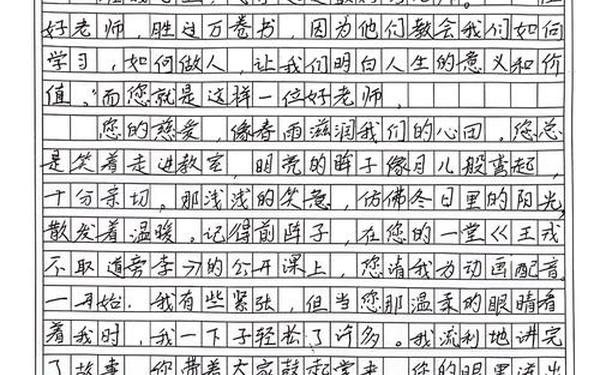 好老师，胜过万卷书，因为他们教会我们如何
学习，如何做人，让我们明白人生的意义和价
值。”而您就是这样一位好老师，
您的慈爱，像春雨滋润我们的心田。您总
是笑着走进教室，明亮的眸子像月儿般弯起，
十分亲切。那浅浅的笑意，仿佛冬日里的阳光，
散发着温暖。记得前阵子，在您的一堂《王戎
不取道旁李》的公开课上，您请我为动画配音。
一开始，我有些紧张，但当您那温柔的眼睛看
着我时，我一下子轻松了许多。我流利地讲完
了故事，您带着大家鼓起掌来，您的眼里流出